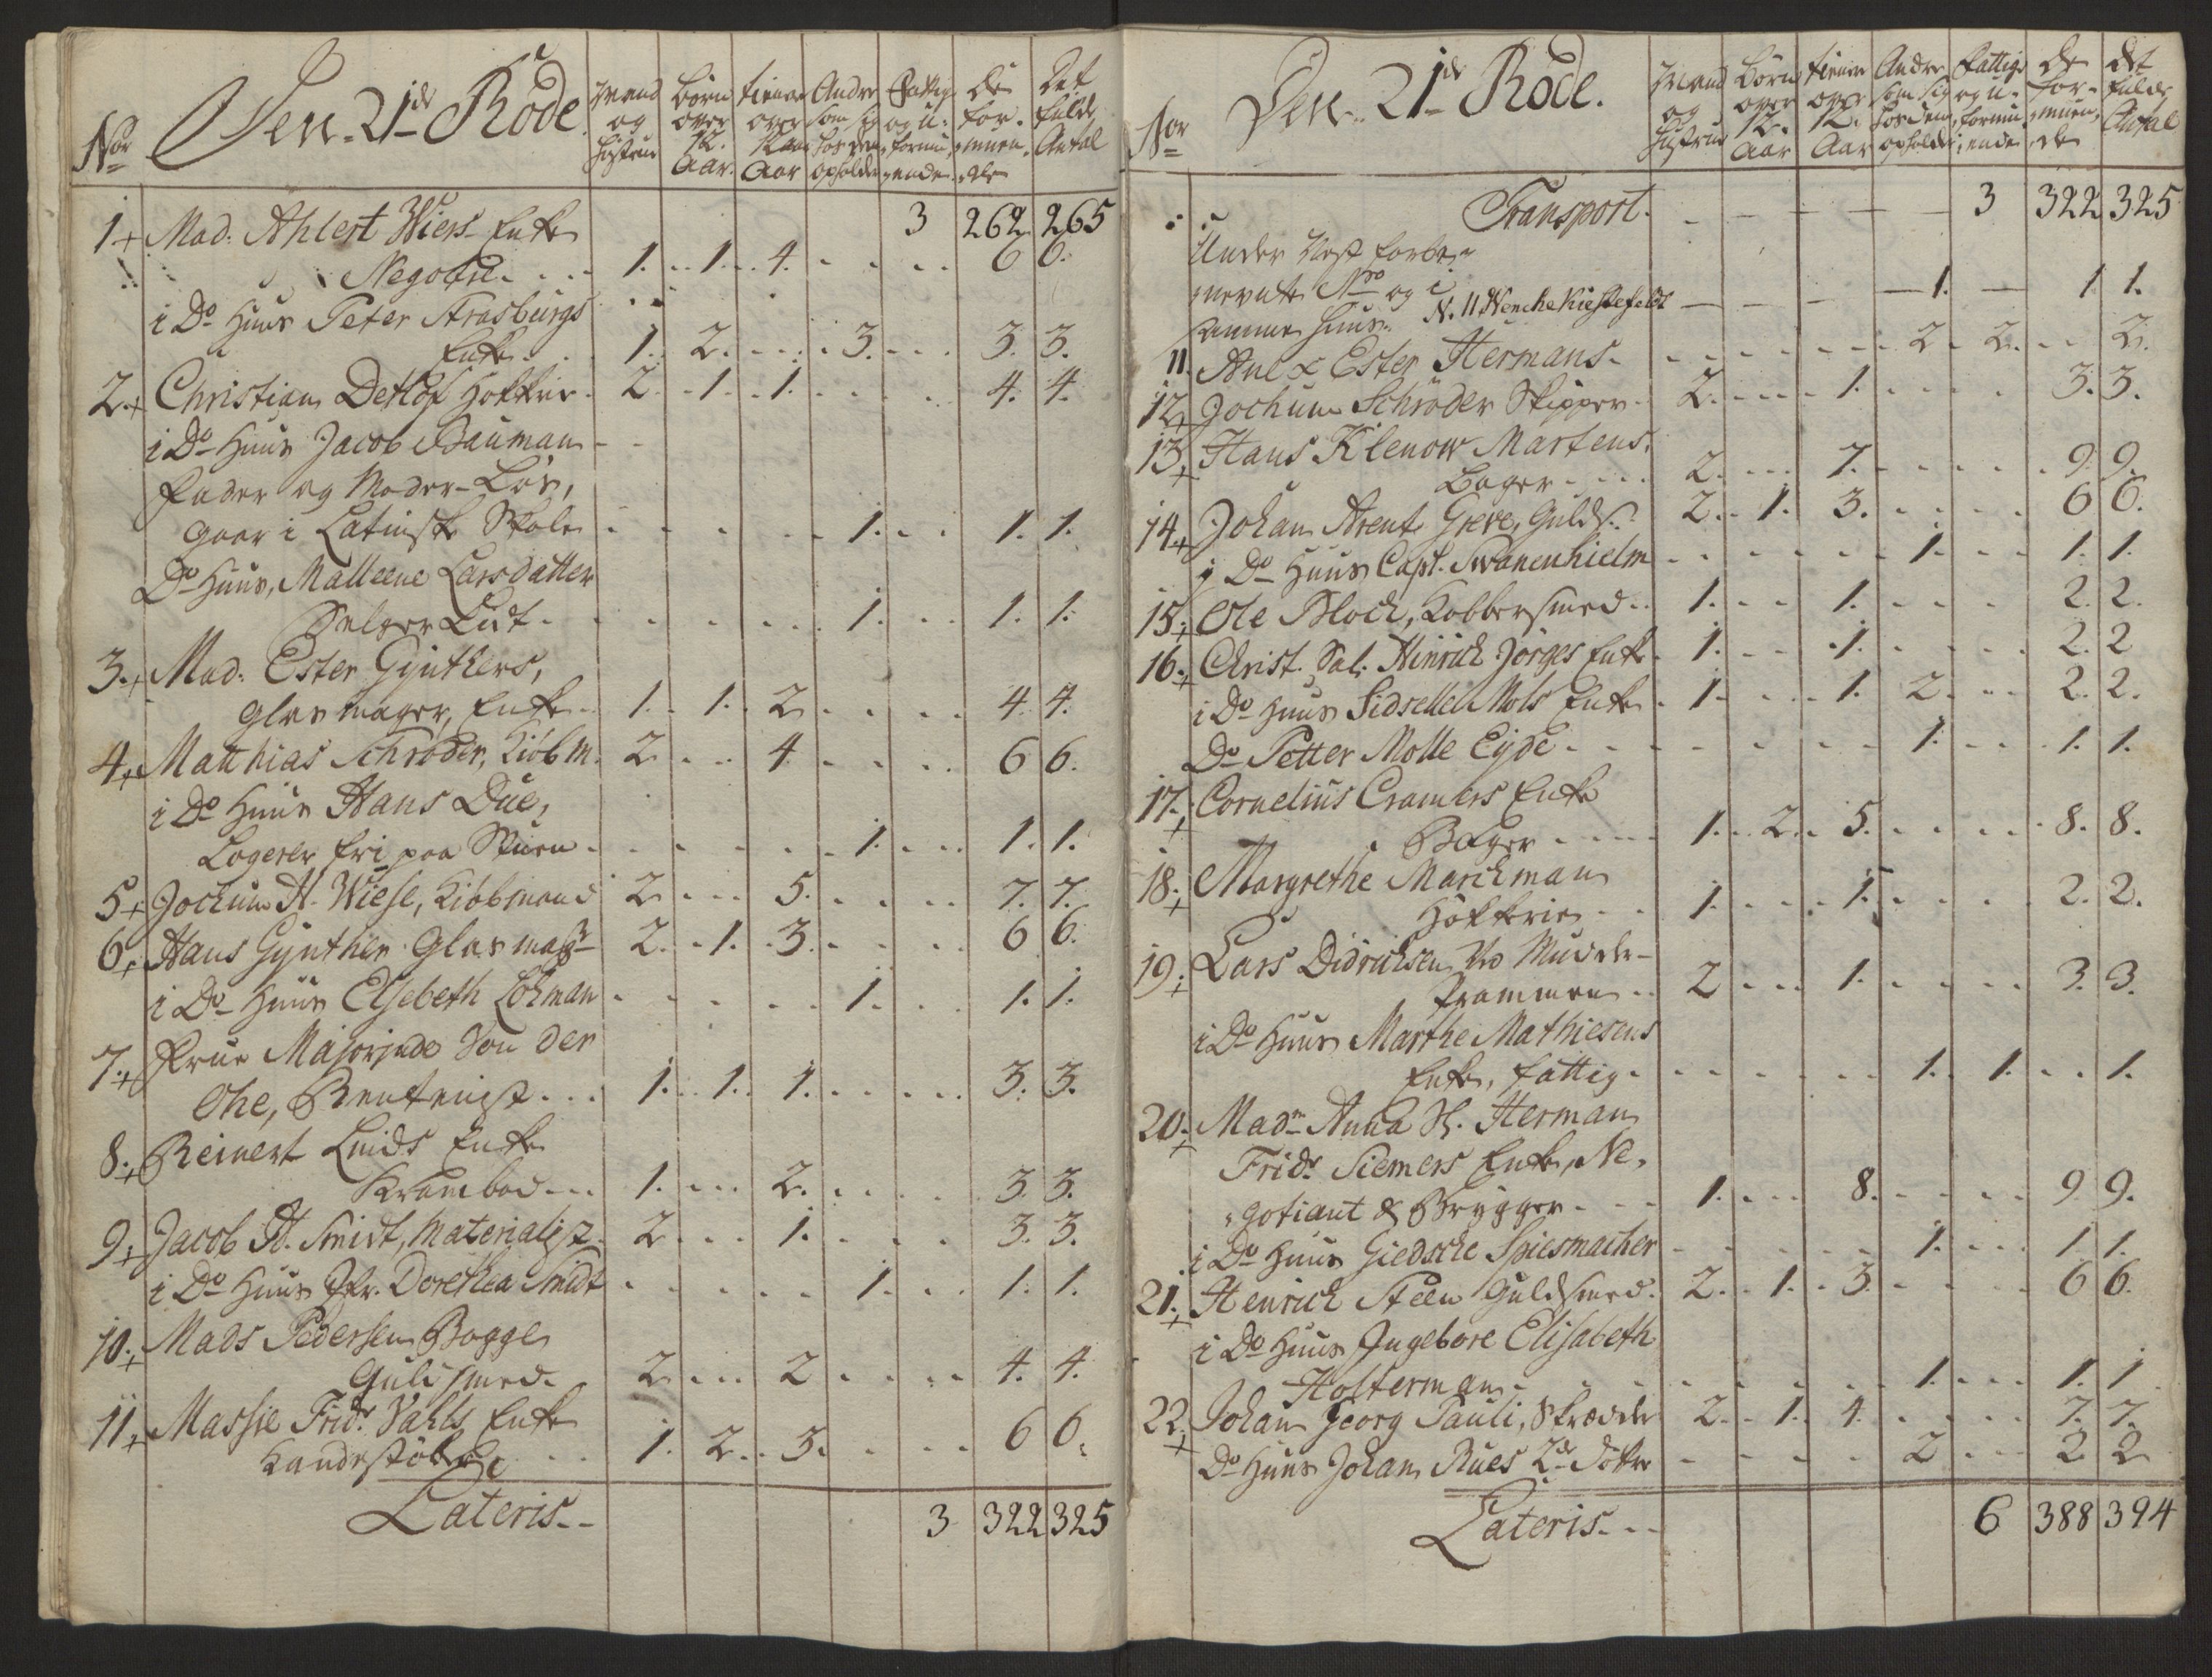 No Den 21de Rode. Mand og Hustrue Börn over 12. Aar. tienere over 12 Aar Andre som sig hos dem opholde Fattig og u-formuende De formuende Det fulde Antal
3 262 265
1 Mad. Ahlert Wiers Enke
Negotie 1. 1. 4. 6 6.
i Do Huus Peter Strasburgs
Enke 1. 2. 3. 3. 3.
2. Christian Detlof Hökker 2. 1. 1. 4. 4.
i Do Huus Jacob Bauman
Fader og Moder-Lös,
gaar i Latinske Skole 1. 1. 1.
Do Huus, Malleene Larsdatter
Selger Lidt 1. 1. 1.
3. Mad. Ester Gynthers,
Glasmager, Enke 1. 1. 2 4. 4.
4. Matthias Schröder, Kiöbm. 2 4 6 6.
i Do Huus Hans Due,
Logerer fri paa Stuen 1. 1. 1.
5 Jochum H. Wiese, Kiöbmand 2 5. 7. 7.
6. Hans Gynther Glasmagr 2. 1. 3. 6 6.
i Do Huus Elsebeth Lohman 1. 1. 1.
7. Frue Majorinde Von der
Ohe, Rentenist 1. 1. 1. 3. 3.
8. Reinert Lnids Enke
Krambod 1. 2. 3. 3.
9. Jacob H. Smidt, Materialist 2 1. 3. 3.
i Do Huus Jfr. Dorethea Smidt 1. 1. 1.
10. Mads Pedersen Bogge
Guldsmed 2 2 4. 4.
11 Massie Fridr Vahls Enke
Kandestöber 1. 2. 3. 6 6.
Lateris 3 322 325
No Den 21de Rode. Mand og Hustrue Börn over 12. Aar tienere over 12. Aar Andre som sig hos dem opholde Fattige og u-formuende De formuende Det fulde Antal
Transport. 3 322 325
Under Nest forbe-
nevnte No og i
samme Huus. N. 11 Wenche Kiestefeldt 1. 1 1.
11. Ane & Ester Hermans 2 2. 2.
12 Jochum Schröder Skipper 2. 1. 3. 3.
13. Hans Klenow Martens,
Bager 2. 7. 9. 9.
14. Johan Arent Greve, Gulds. 2. 1. 3. 6 6.
i Do Huus Capt. Svanenhielm 1. 1. 1.
15. Ole Block, Kobbersmed 1. 1. 2. 2.
16. Christ. Sal. Hinrich Jörges Enke 1. 1. 2. 2
i Do Huus Sidsellel Mols Enke 1. 1. 2. 2. 2.
Do Petter Molle Eyde 1. 1. 1.
17. Cornelius Cramers Enke
Bager 1. 2. 5. 8. 8.
18. Margrethe Marchman
Hökkrie 1. 1. 2. 2.
19. Lars Didrichsen Ved Mudder-
Prammen 2 1. 3. 3.
i Do Huus Marthe Mathiesens
Enke, fattig 1. 1. 1.
20. Madm Anna H. Herman
Fridr Siemers Enke, Ne-
gotiant & Brygger 1. 8. 9 9.
i Do Huus Giedsche Spiesmacher 1. 1 1.
21. Henrich Steen Guldsmed 2. 1. 3. 6 6.
i Do Huus Ingebore Elisabeth
Holterman 1. 1. 1
22. Johan Georg Pauli, Skrædder 2. 1. 4. 7. 7.
Do Huus Johan Rues 2de Döttre 2 2 2
Lateris 6 388 394